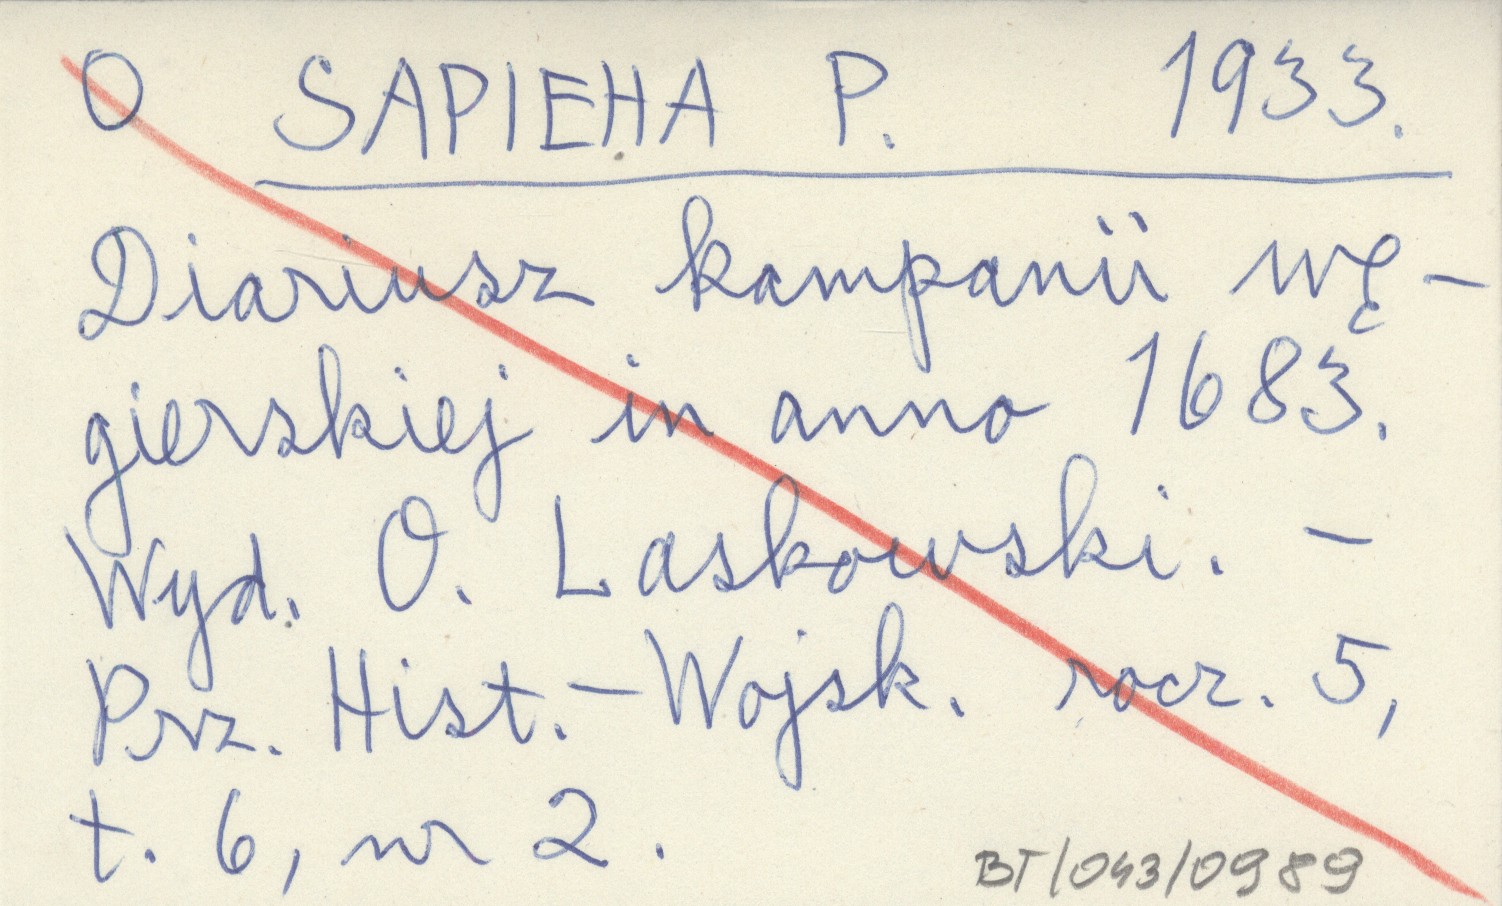 O SAPIEHA P. 1933.
Diariusz kampanii wę-
gierskiej in anno 1683.
Wyd. O. Laskowski. –
Prz. Hist.–Wojsk. rocz. 5,
t. 6, nr 2.
BT/043/0989